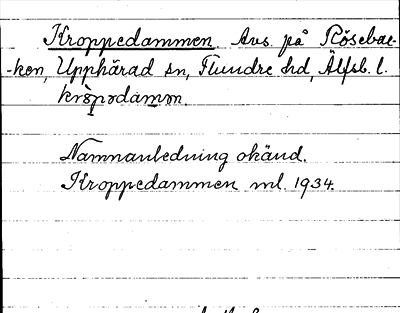 Kroppedammen. Avs. på Rösebac-
-ken, Upphärad sn, Flundre hd, Älfsb. l.
Namnanledning okänd.
Kroppedammen ml. 1934.